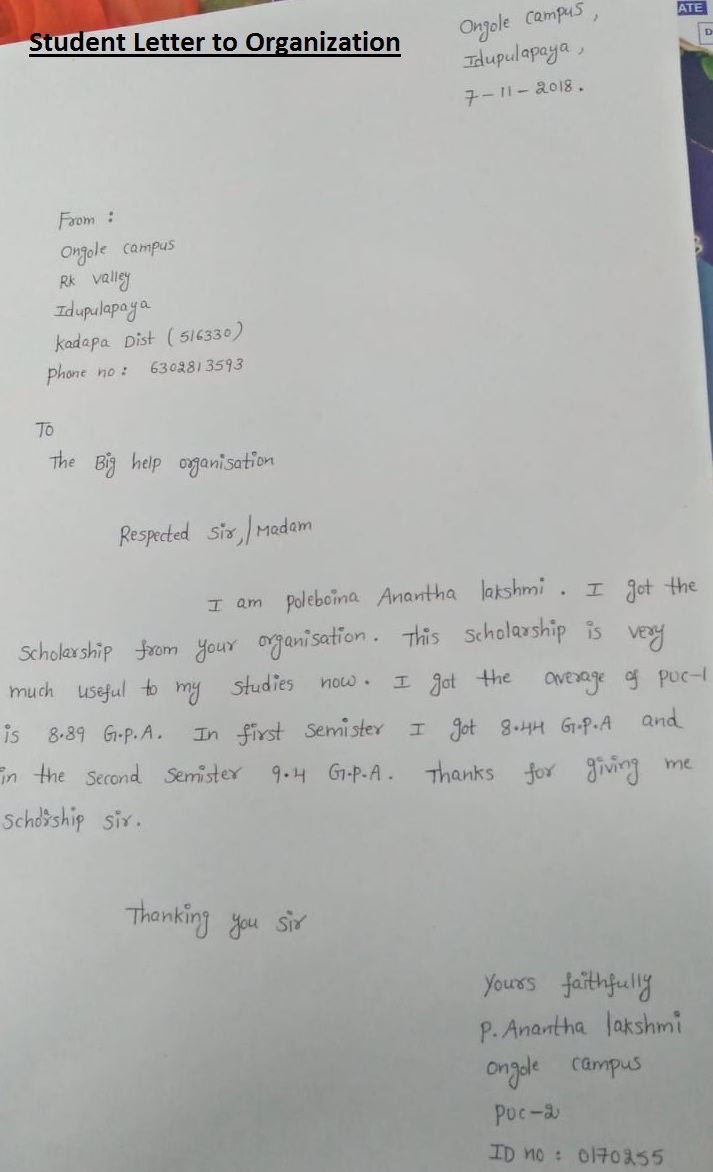 ATE
D
Student Letter to Organization
Ongole campus,
Idupulapaya,
7-11-2018.
From :
Ongole campus
Rk valley
Idupulapaya
Kadapa Dist (516330)
Phone no : 6302813593
To
The Big help organisation
Respected Sir,/Madam
I am poleboina Anantha lakshmi. I got the
Scholarship from your organisation. This scholarship is very
much useful to my studies now. I got the average of PUC-1
is 8.89 G.P.A. In first Semister I got 8.44 G.P.A and
in the Second Semister 9.4 G.P.A. Thanks for giving me
Schorship sir.
Thanking you sir
yours faithfully
P. Anantha lakshmi
ongole campus
PUC-2
ID no : 0170255